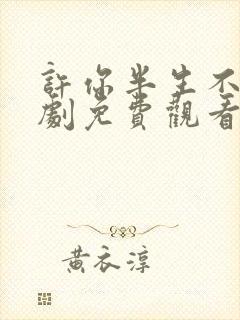 許你半生不
劇免費觀看
黃衣淳